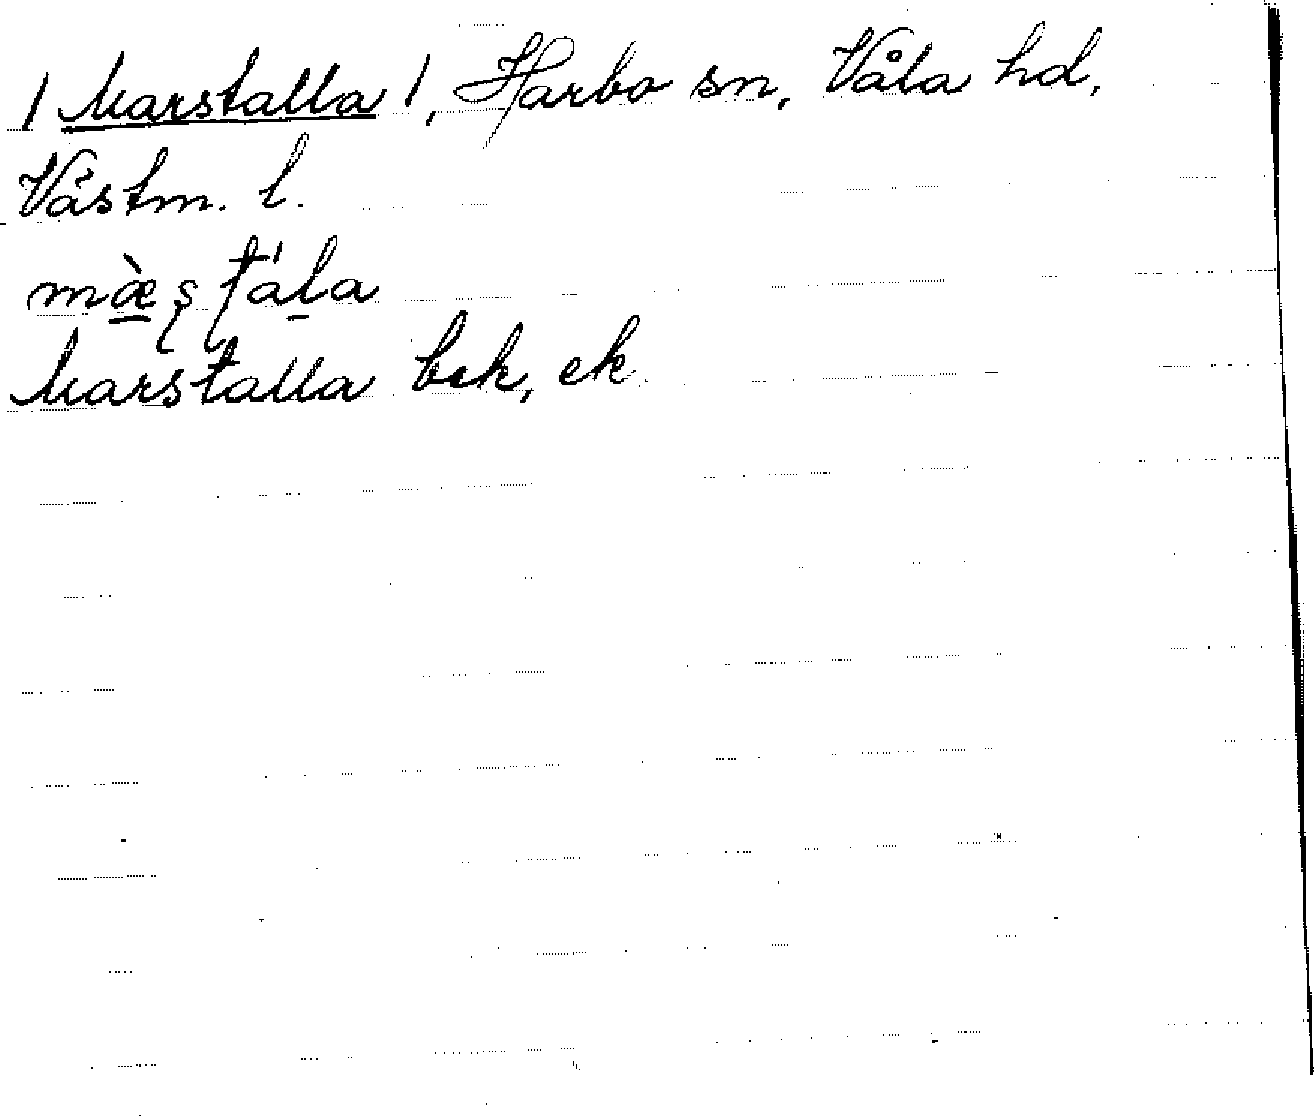 / Marstalla /, Harbo sn, Våla hd,
Västm. l.
mæ̀ʂʈála
Marstalla bek, ek